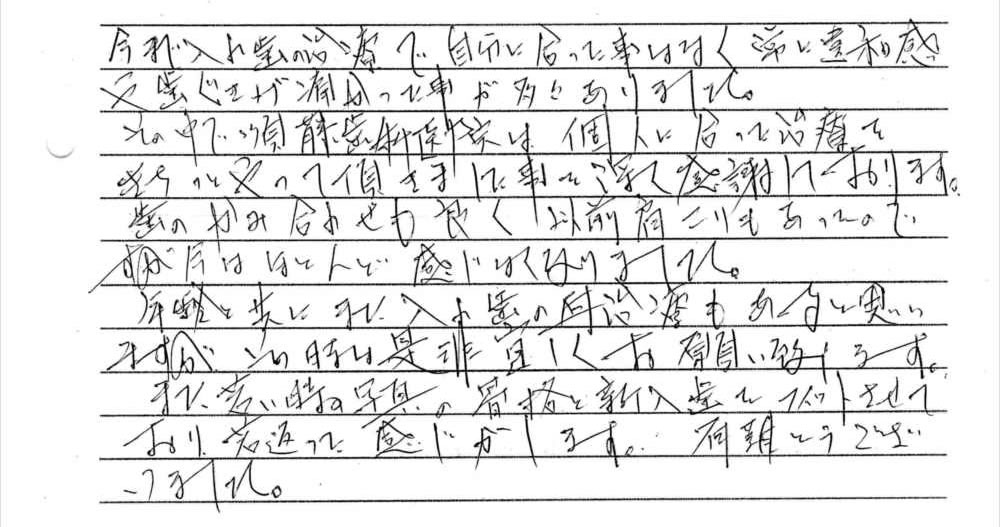 今まで入れ歯の治療で自分に合った事はなく常に違和感
や歯ぐきが痛かった事が多々ありました。
その中で須藤歯科医院は個人に合った治療を
きちっとやって頂きました事を深く感謝しております。
歯のかみ合わせも良く以前肩こりもあったので
すが今はほとんど感じなくなりました。
年齢と共にまた入れ歯の再治療もあると思い
ますがその時は是非宜しくお願い致します。
また若い時の写真の骨格と新入歯をフィットさせて
おり若返った感じがします。有難とうござい
ました。